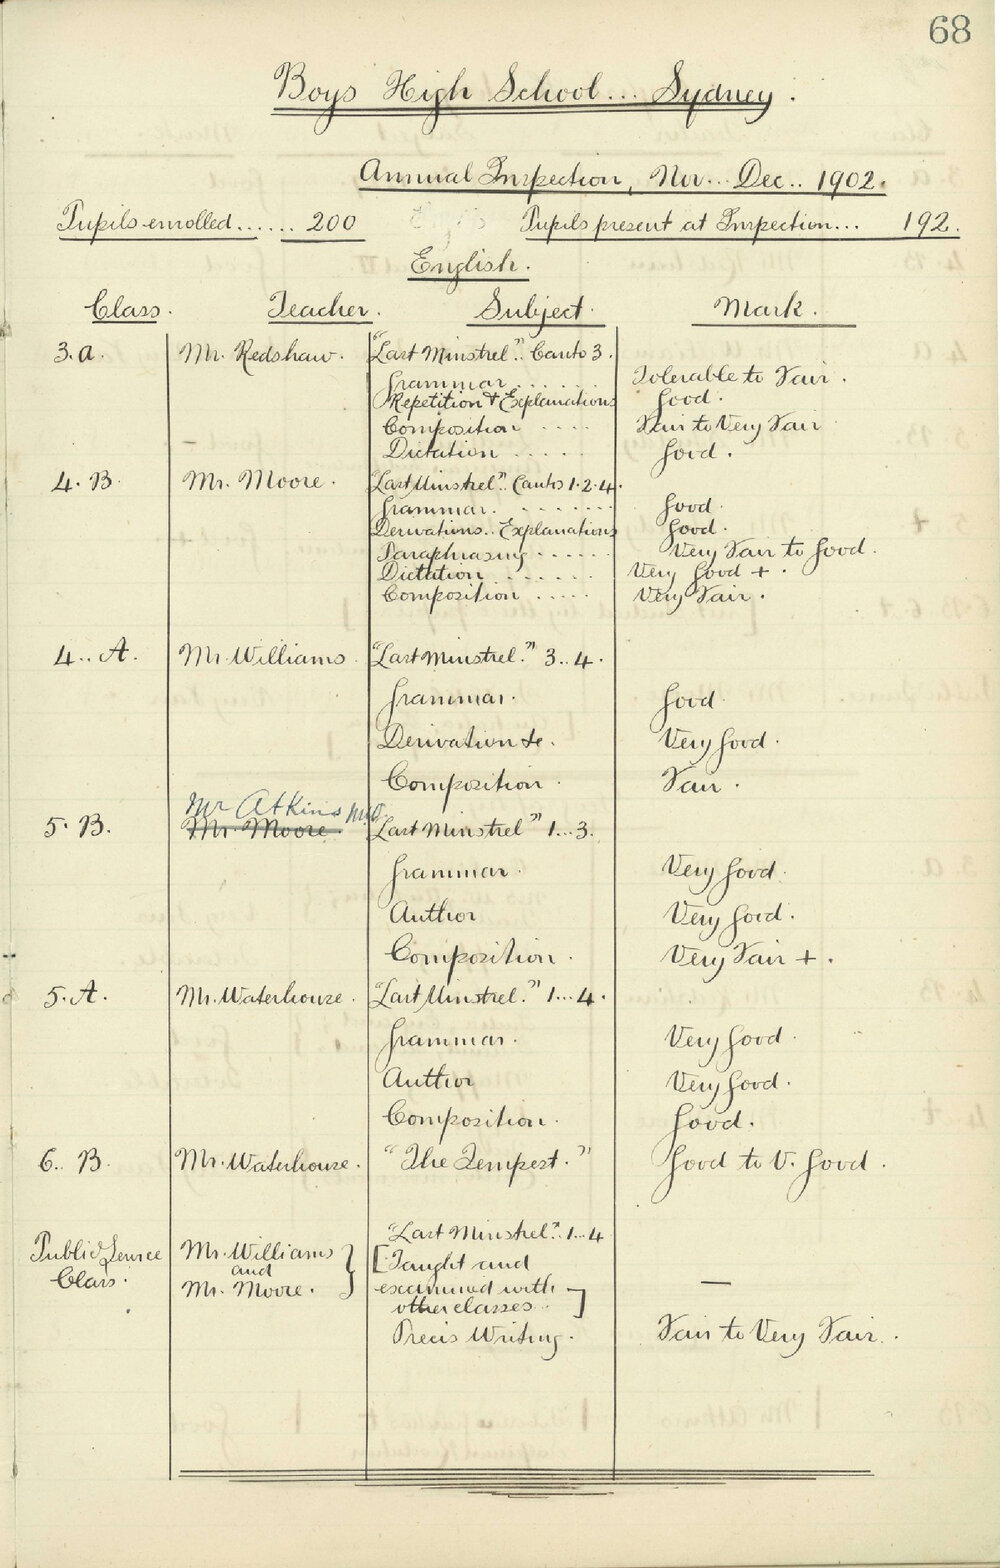 68
Boys High School... Sydney.
Annual Inspection, Nov... Dec.. 1902.
Pupils enrolled...... 200 Pupils present at Inspection... 192.
English.
Class. Teacher. Subject. Mark.
3.a. Mr. Redshaw. "Last Minstrel".. Canto 3.
Grammar...... Tolerable to Fair.
Repetition & Explanations Good.
Composition .... Fair to Very Fair
Dictation ..... Good.
4. B. Mr. Moore. "Last Minstrel".. Cantos 1.2.4.
Grammar. ....... Good
Derivations.. Explanations Good.
Paraphrasing ...... Very Fair to Good.
Dictation ...... Very Good +.
Composition ..... Very Fair.
4.. A. Mr. Williams. "Last Minstrel." 3..4.
Grammar. Good.
Derivation &c. Very Good.
Composition. Fair.
Mr Atkins
5. B. Mr. Moore "Last Minstrel" 1...3.
Grammar. Very Good.
Author Very Good.
Composition. Very Fair +.
5. A. Mr. Waterhouse. "Last Minstrel." 1...4.
Grammar. Very Good.
Author Very Good.
Composition. Good.
6.. B. Mr. Waterhouse. "The Tempest." Good to V. Good.
"Last Minstrel".. 1...4
Public Service Mr. Williams } [Taught and
Class. and examined with —
Mr. Moore. } other classes.. ]
Precis Writing. Fair to Very Fair.